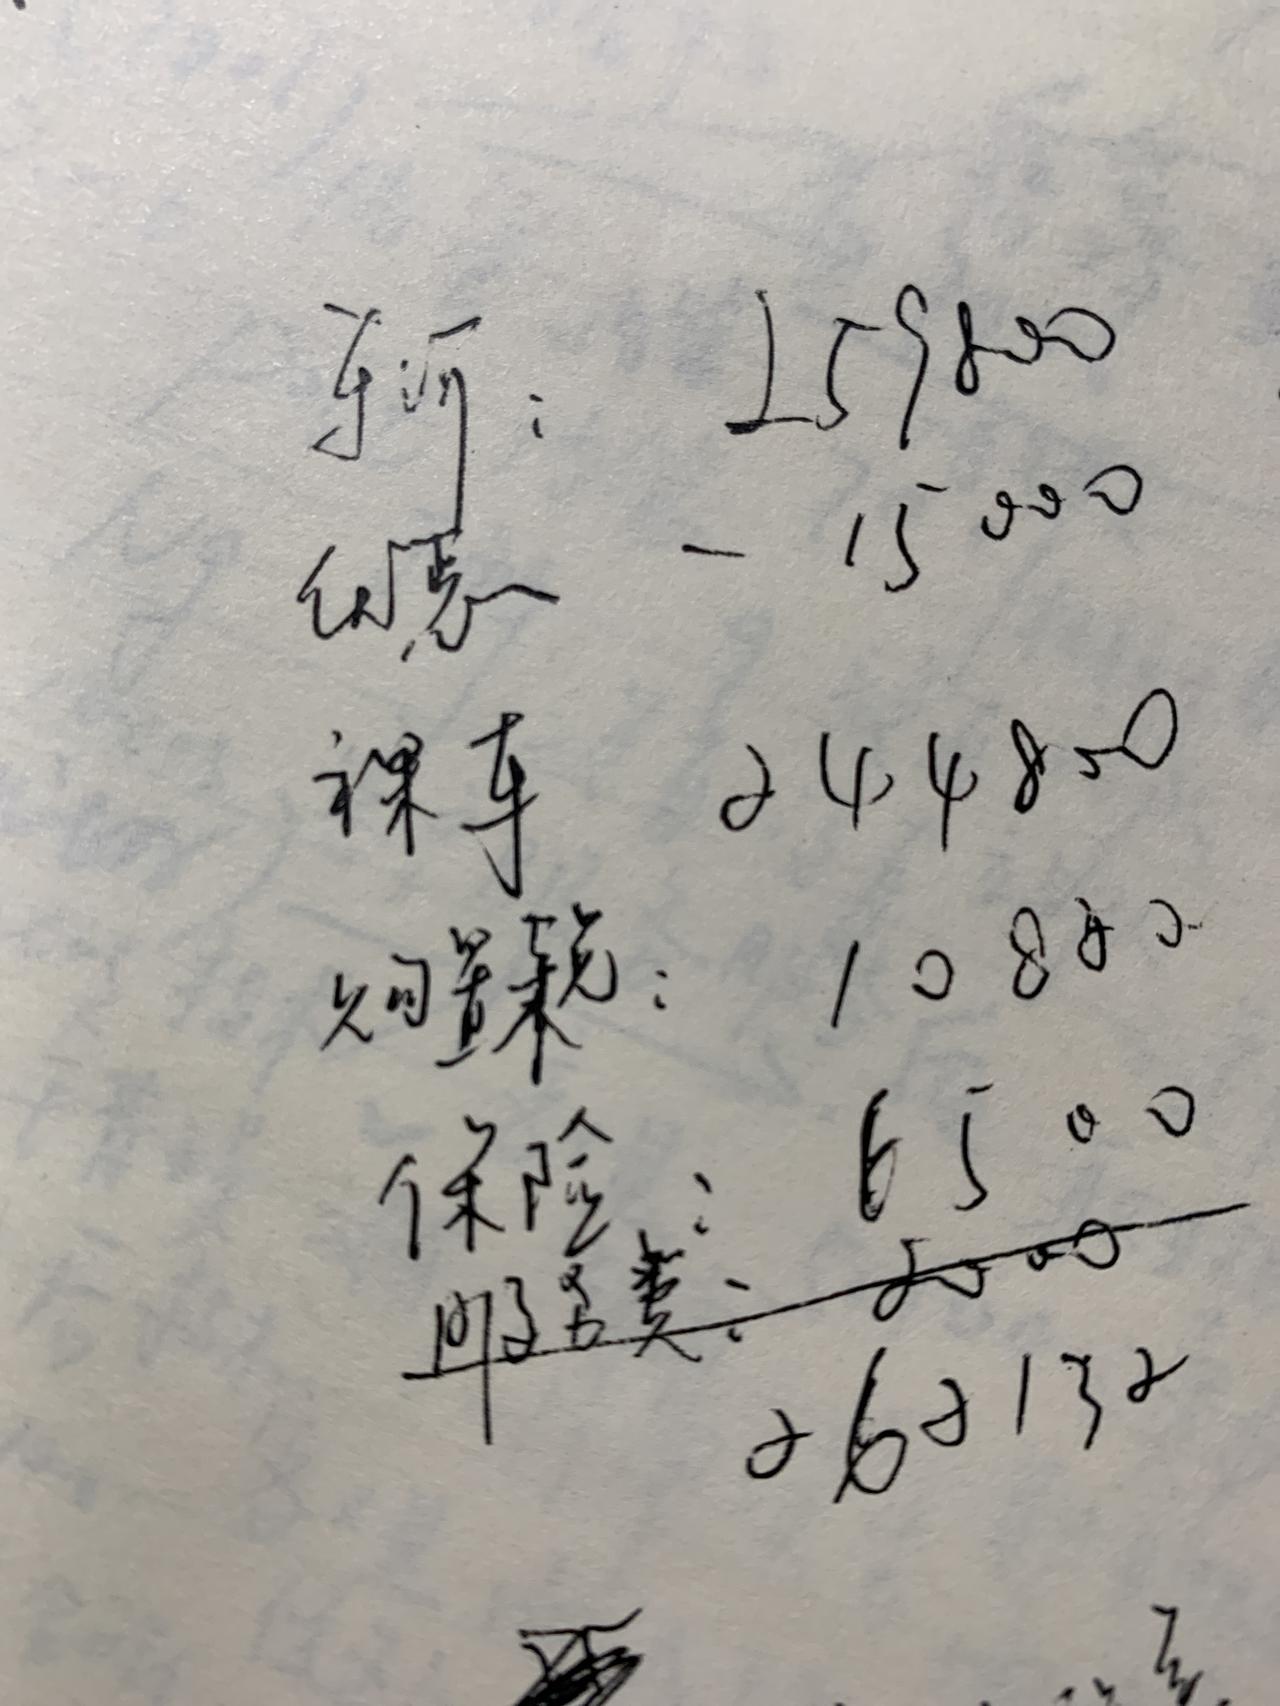 车价: 259800
优惠 - 15000
裸车 244800
购置税: 10832
保险: 6500
服务费:
262132